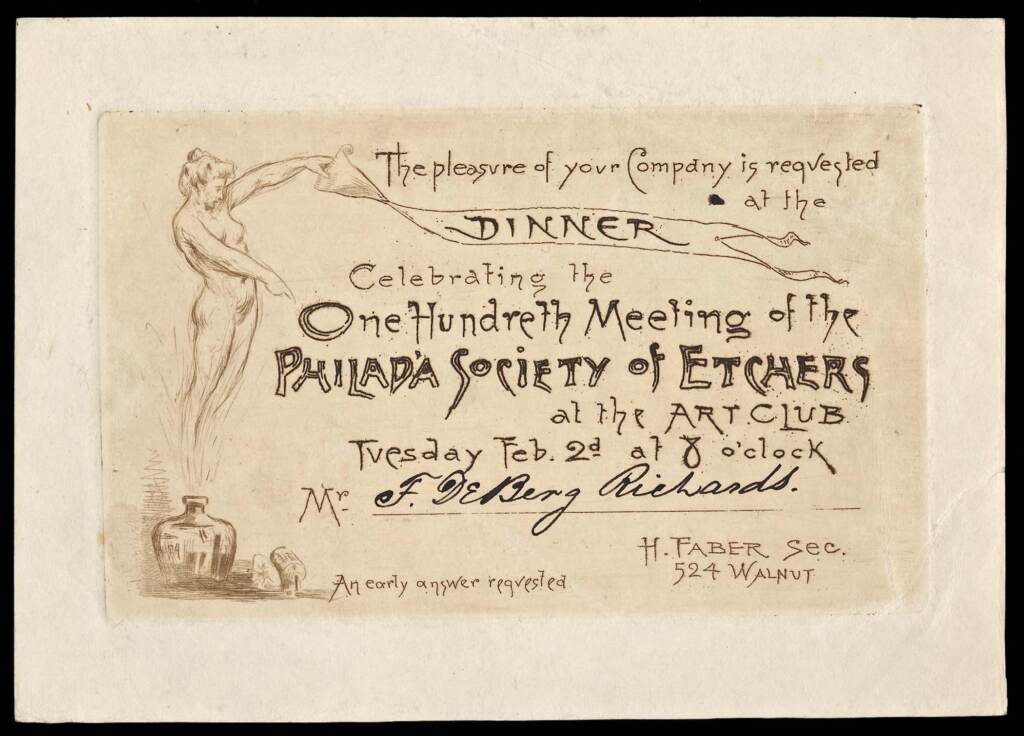 The pleasure of your Company is requested
at the
DINNER
Celebrating the
One Hundreth Meeting of the
PHILAD'A SOCIETY OF ETCHERS
at the ART CLUB
Tuesday Feb. 2d at 8 o'clock
Mr. F. DeBerg Richards.
H. FABER Sec.
524 WALNUT
An early answer requested